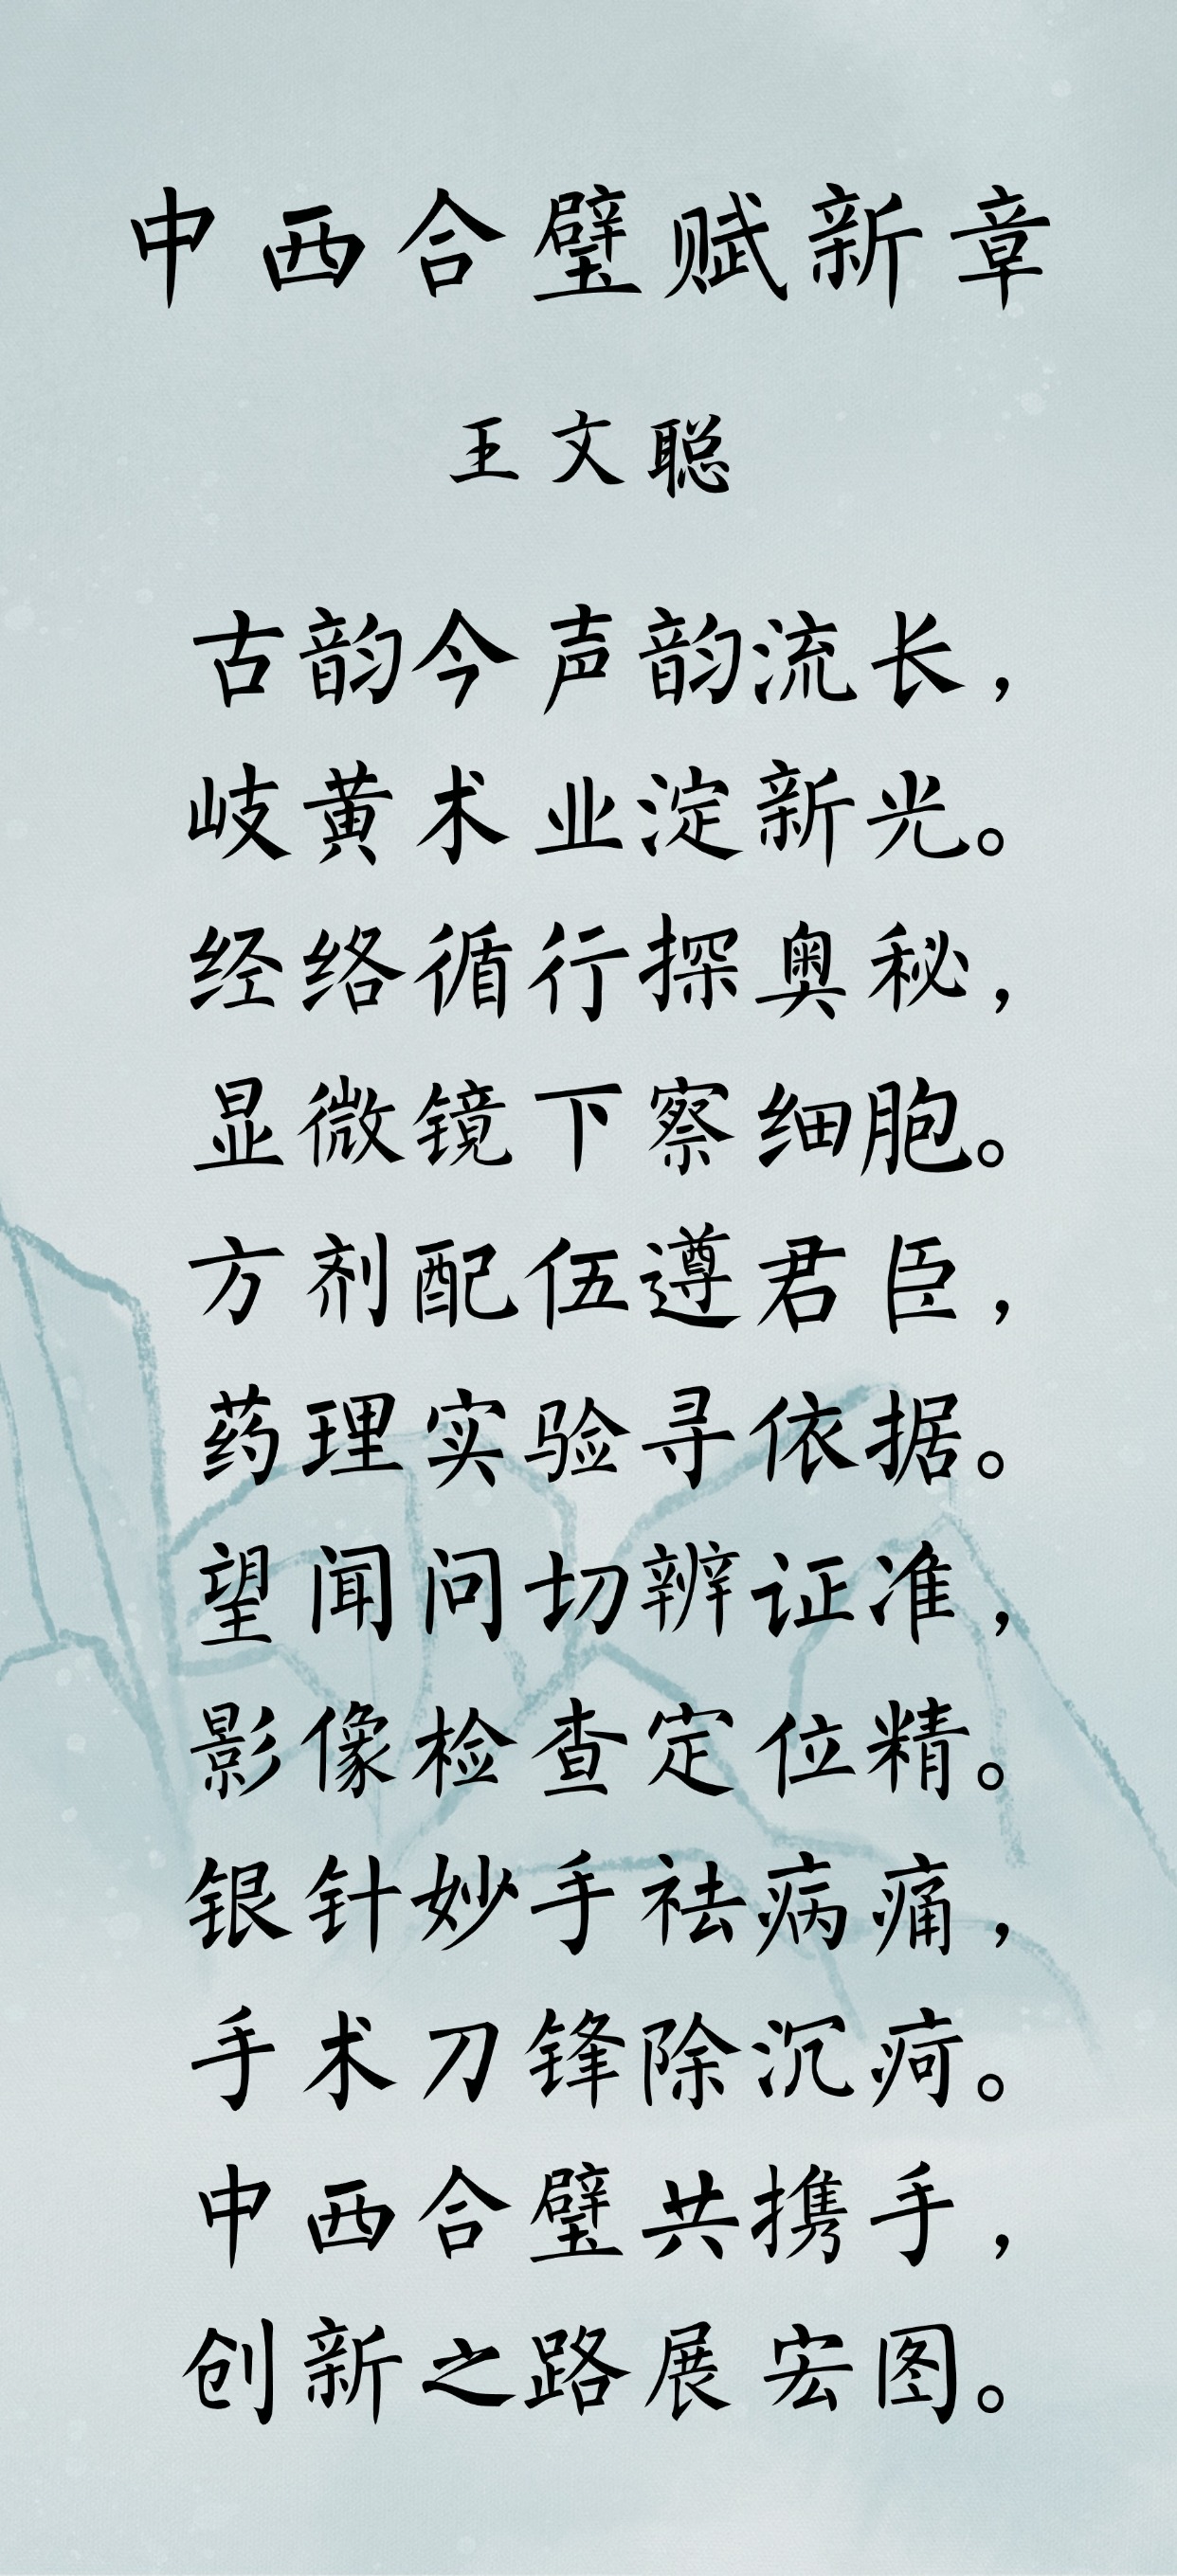 中西合璧赋新章
王文聪
古韵今声韵流长，
岐黄术业淀新光。
经络循行探奥秘，
显微镜下察细胞。
方剂配伍遵君臣，
药理实验寻依据。
望闻问切辨证准，
影像检查定位精。
银针妙手祛病痛，
手术刀锋除沉疴。
中西合璧共携手，
创新之路展宏图。